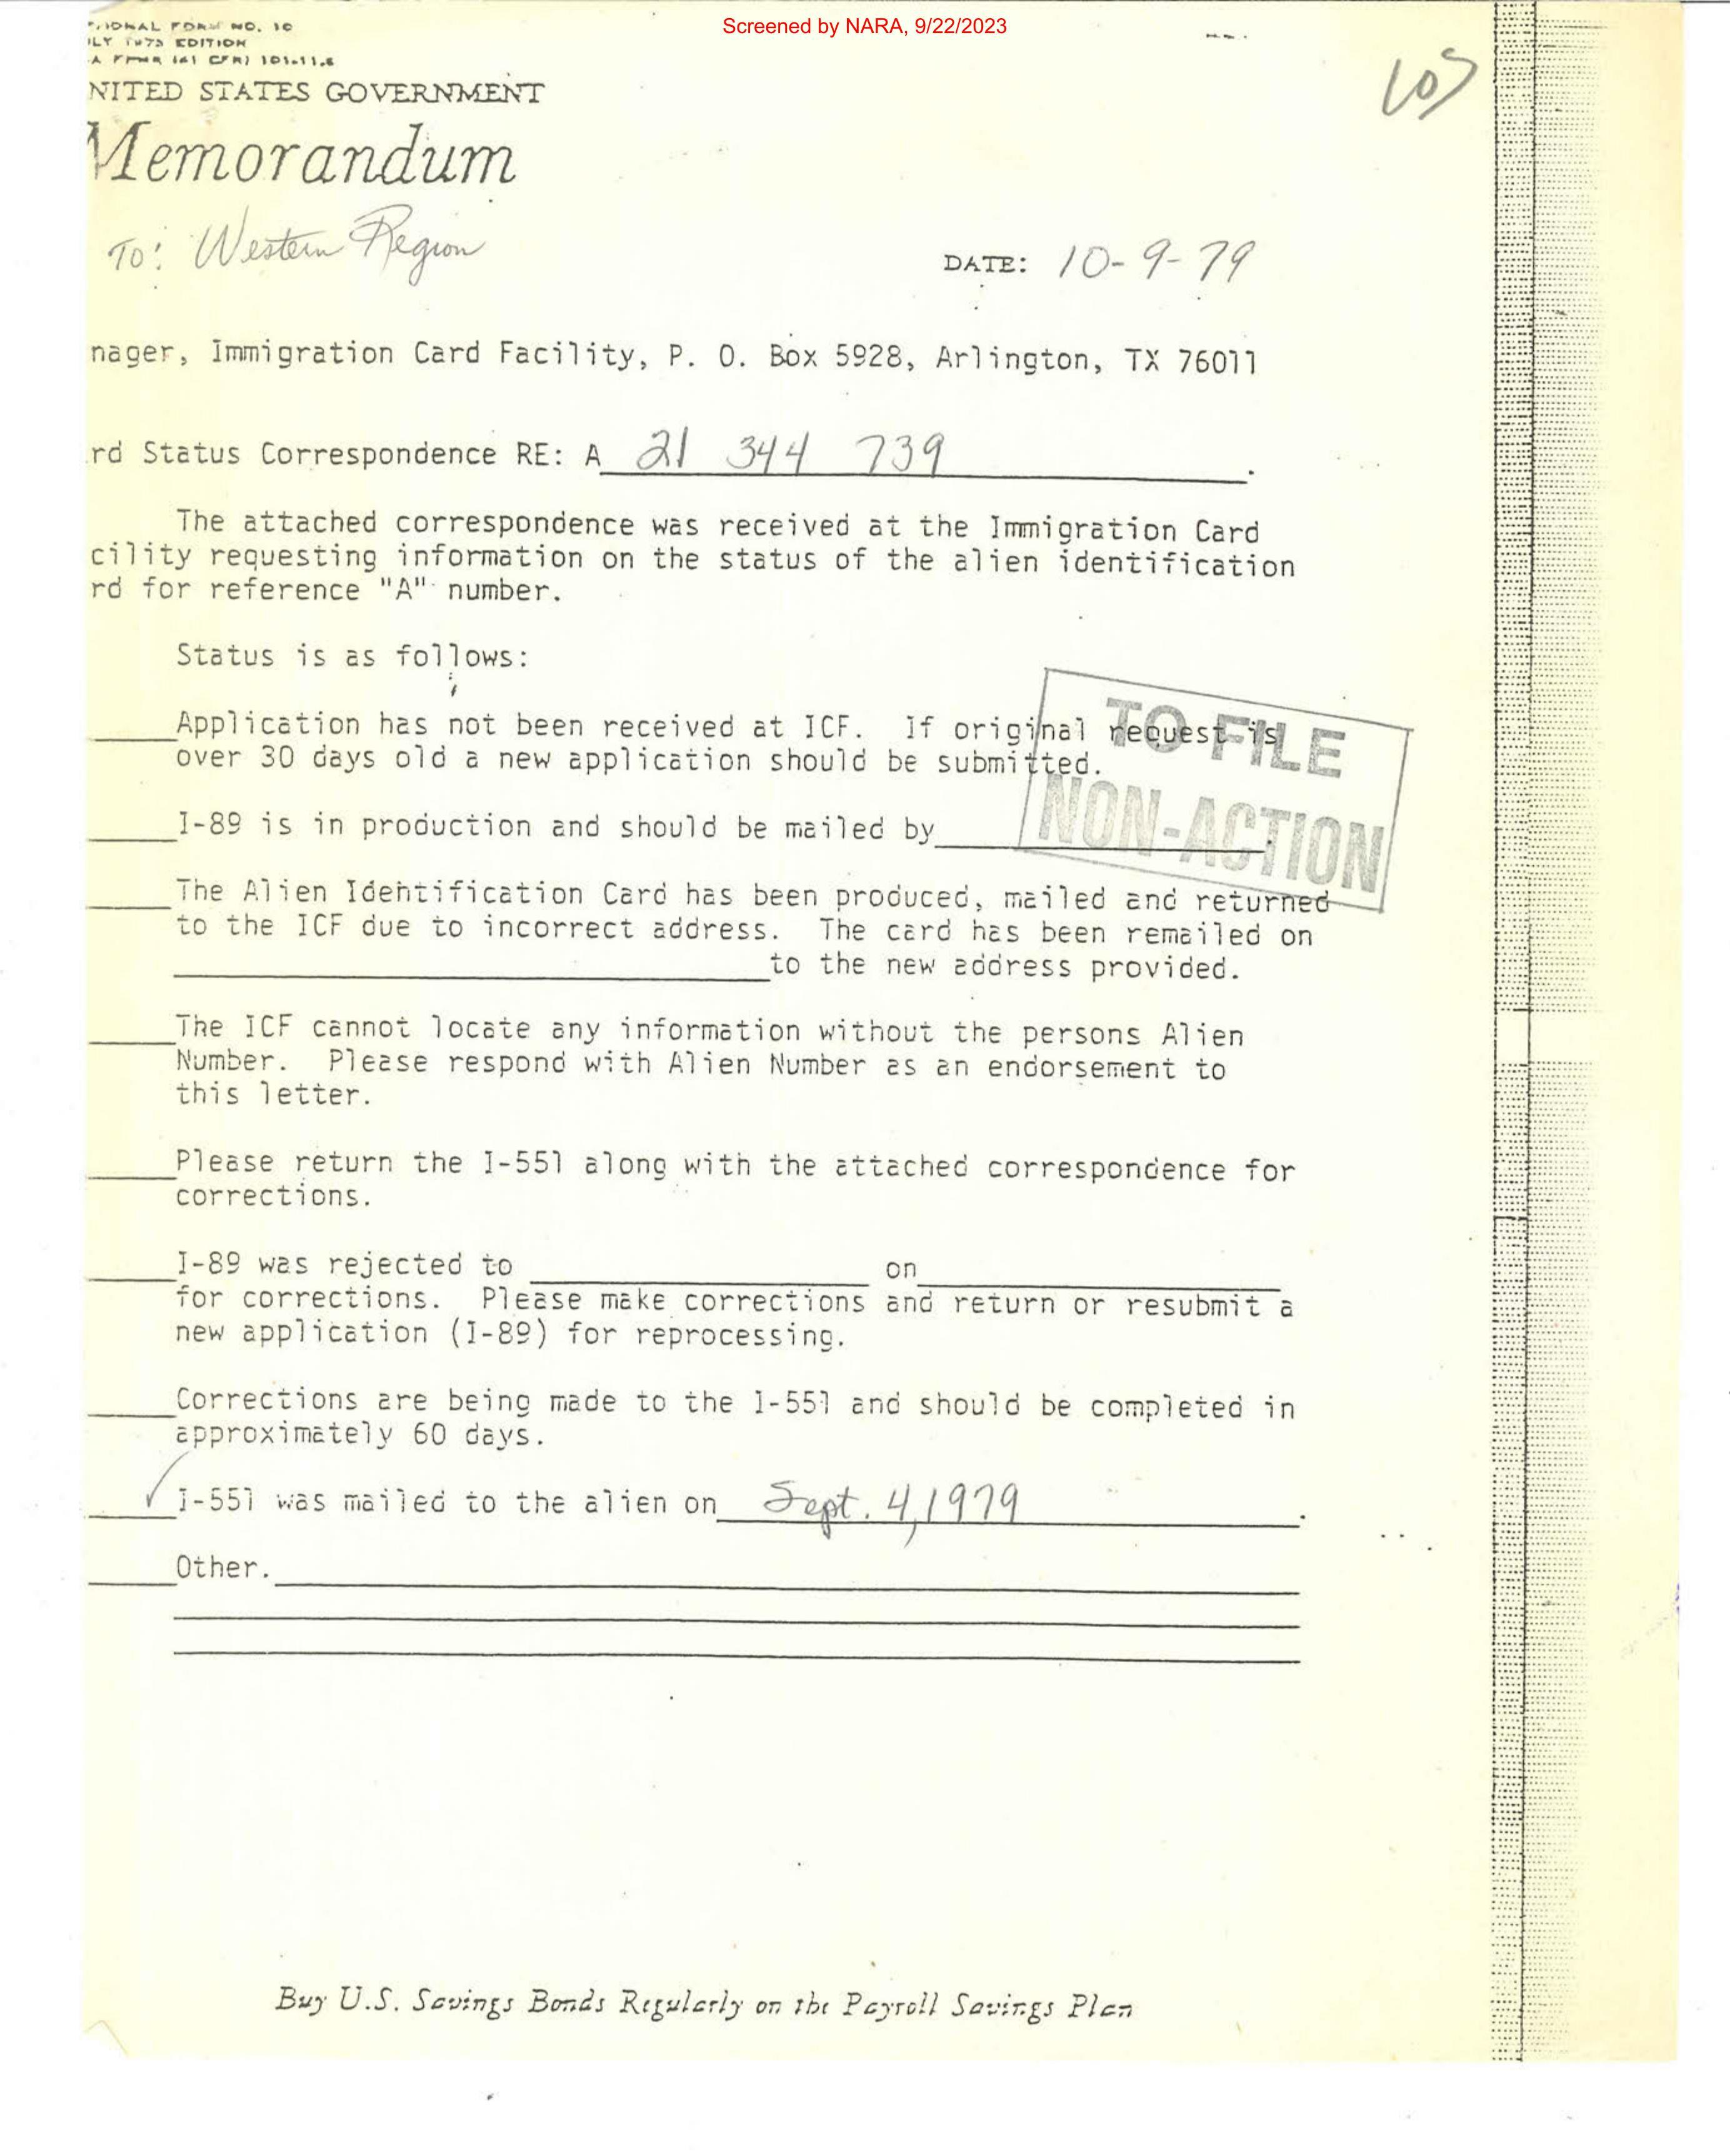 Screened by NARA, 9/22/2023
IONAL FORM NO. 10
ILY 1973 EDITION
A FPMR (41 CFR) 101-11.6
LOS
NITED STATES GOVERNMENT
Memorandum
To: Western Region
DATE: 10-9-79
nager, Immigration Card Facility, P. O. Box 5928, Arlington, TX 76011
rd Status Correspondence RE: A 21 344 739.
The attached correspondence was received at the Immigration Card
cility requesting information on the status of the alien identification
rd for reference "A" number.
Status is as follows:
Application has not been received at ICF. If original request is
over 30 days old a new application should be submitted.
TO FILE
NON-ACTION
I-89 is in production and should be mailed by
The Alien Identification Card has been produced, mailed and returned
to the ICF due to incorrect address. The card has been remailed on
to the new address provided.
The ICF cannot locate any information without the persons Alien
Number. Please respond with Alien Number as an endorsement to
this letter.
Please return the I-551 along with the attached correspondence for
corrections.
I-89 was rejected to on
for corrections. Please make corrections and return or resubmit a
new application (I-89) for reprocessing.
Corrections are being made to the I-551 and should be completed in
approximately 60 days.
✓ I-551 was mailed to the alien on Sept. 4, 1979.
Other.
Buy U.S. Savings Bonds Regularly on the Payroll Savings Plan